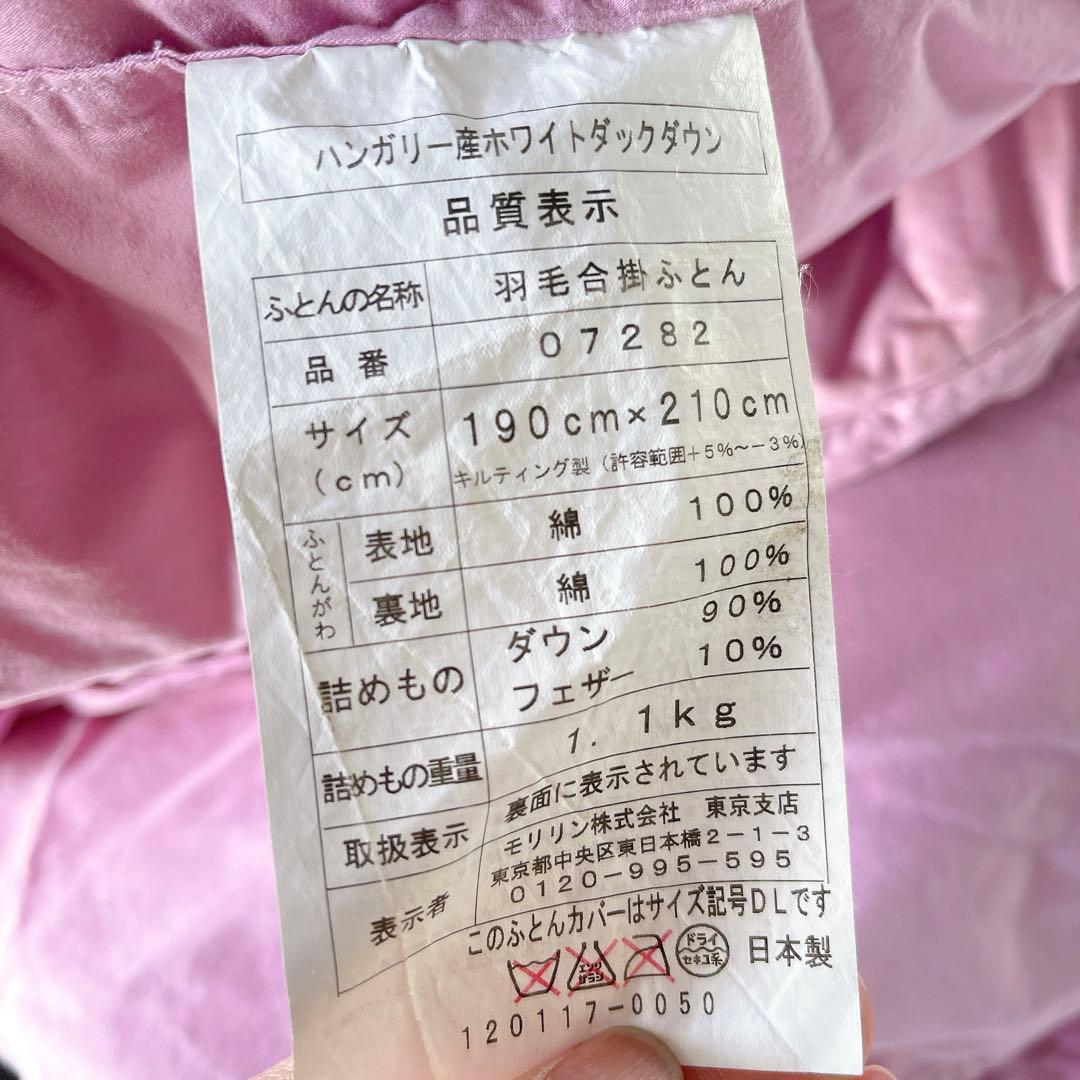 ハンガリー産ホワイトダックダウン
品質表示
ふとんの名称 羽毛合掛ふとん
品番 07282
サイズ(cm) 190cm×210cm
キルティング製(許容範囲+5%~-3%)
ふとんがわ 表地 綿 100%
裏地 綿 100%
詰めもの ダウン 90%
フェザー 10%
詰めもの重量 1.1kg
取扱表示 裏面に表示されています
表示者 モリリン株式会社 東京支店
東京都中央区東日本橋2-1-3
0120-995-595
このふとんカバーはサイズ記号DLです
エンソサラシ ドライ セキユ系 日本製
120117-0050